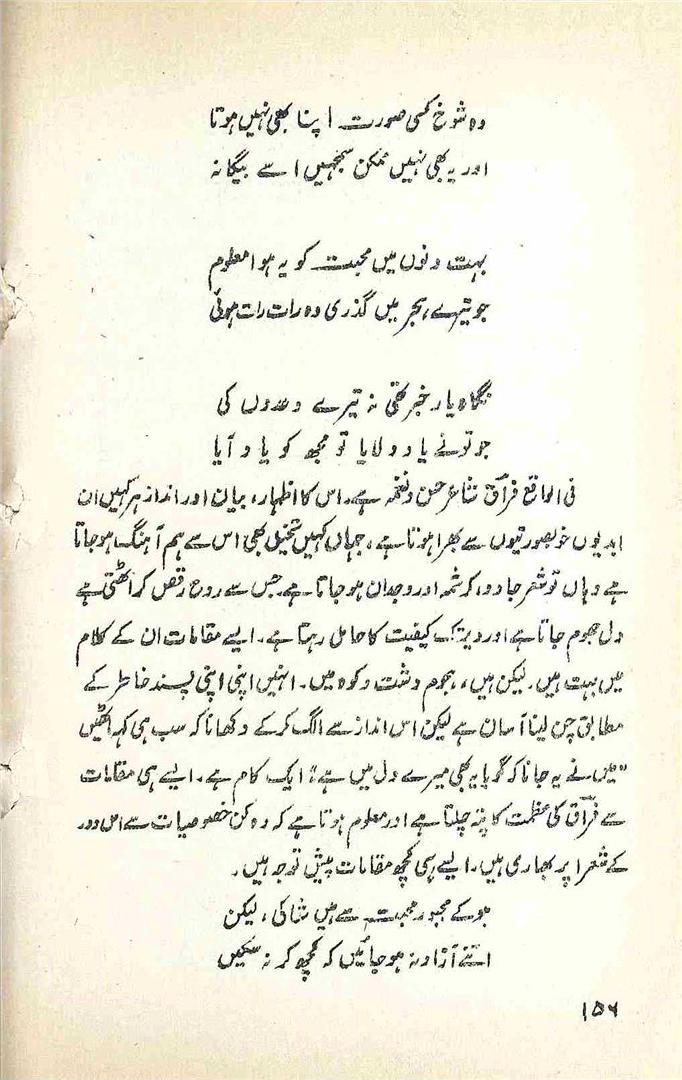 وہ شوخ کسی صورت اپنا بھی نہیں ہوتا
اور یہ بھی نہیں ممکن سمجھیں اسے بیگانہ
بہت دنوں میں محبت کو یہ ہوا معلوم
جو تیرے ہجر میں گذری وہ رات رات ہوئی
نگاہ یار خبر تھی نہ تیرے وعدوں کی
جو تونے یاد دلایا تو مجھ کو یاد آیا
فی الواقع فراقؔ شاعر حسن و نغمہ ہے۔ اس کا اظہار، بیان اور انداز ہر کہیں ان
ابدیوں خوبصورتیوں سے بھرا ہوتا ہے، جہاں کہیں تخیل بھی اس سے ہم آہنگ ہو جاتا
ہے وہاں تو شعر جادو، کرشمہ اور وجدان ہو جاتا ہے۔ جس سے روح رقص کر اٹھتی ہے
دل جھوم جاتا ہے اور دیر تک کیفیت کا حامل رہتا ہے۔ ایسے مقامات ان کے کلام
میں بہت ہیں۔ لیکن ہیں، ہجوم دشت و کوہ میں۔ انہیں اپنی اپنی پسند خاطر کے
مطابق چن لینا آسان ہے لیکن اس انداز سے الگ کر کے دکھانا کہ سب ہی کہہ اٹھیں
"میں نے یہ جانا کہ گویا یہ بھی میرے دل میں ہے" ایک کام ہے۔ ایسے ہی مقامات
سے فراقؔ کی عظمت کا پتہ چلتا ہے اور معلوم ہوتا ہے کہ وہ کن خصوصیات سے اس دور
کے شعرا پر بھاری ہیں۔ ایسے ہی کچھ مقامات پیش توجہ ہیں۔
ہو کے مجبور محبت سے ہیں شاکی، لیکن
اتنے آزاد نہ ہو جائیں کہ کچھ کر نہ سکیں
۱۵۶